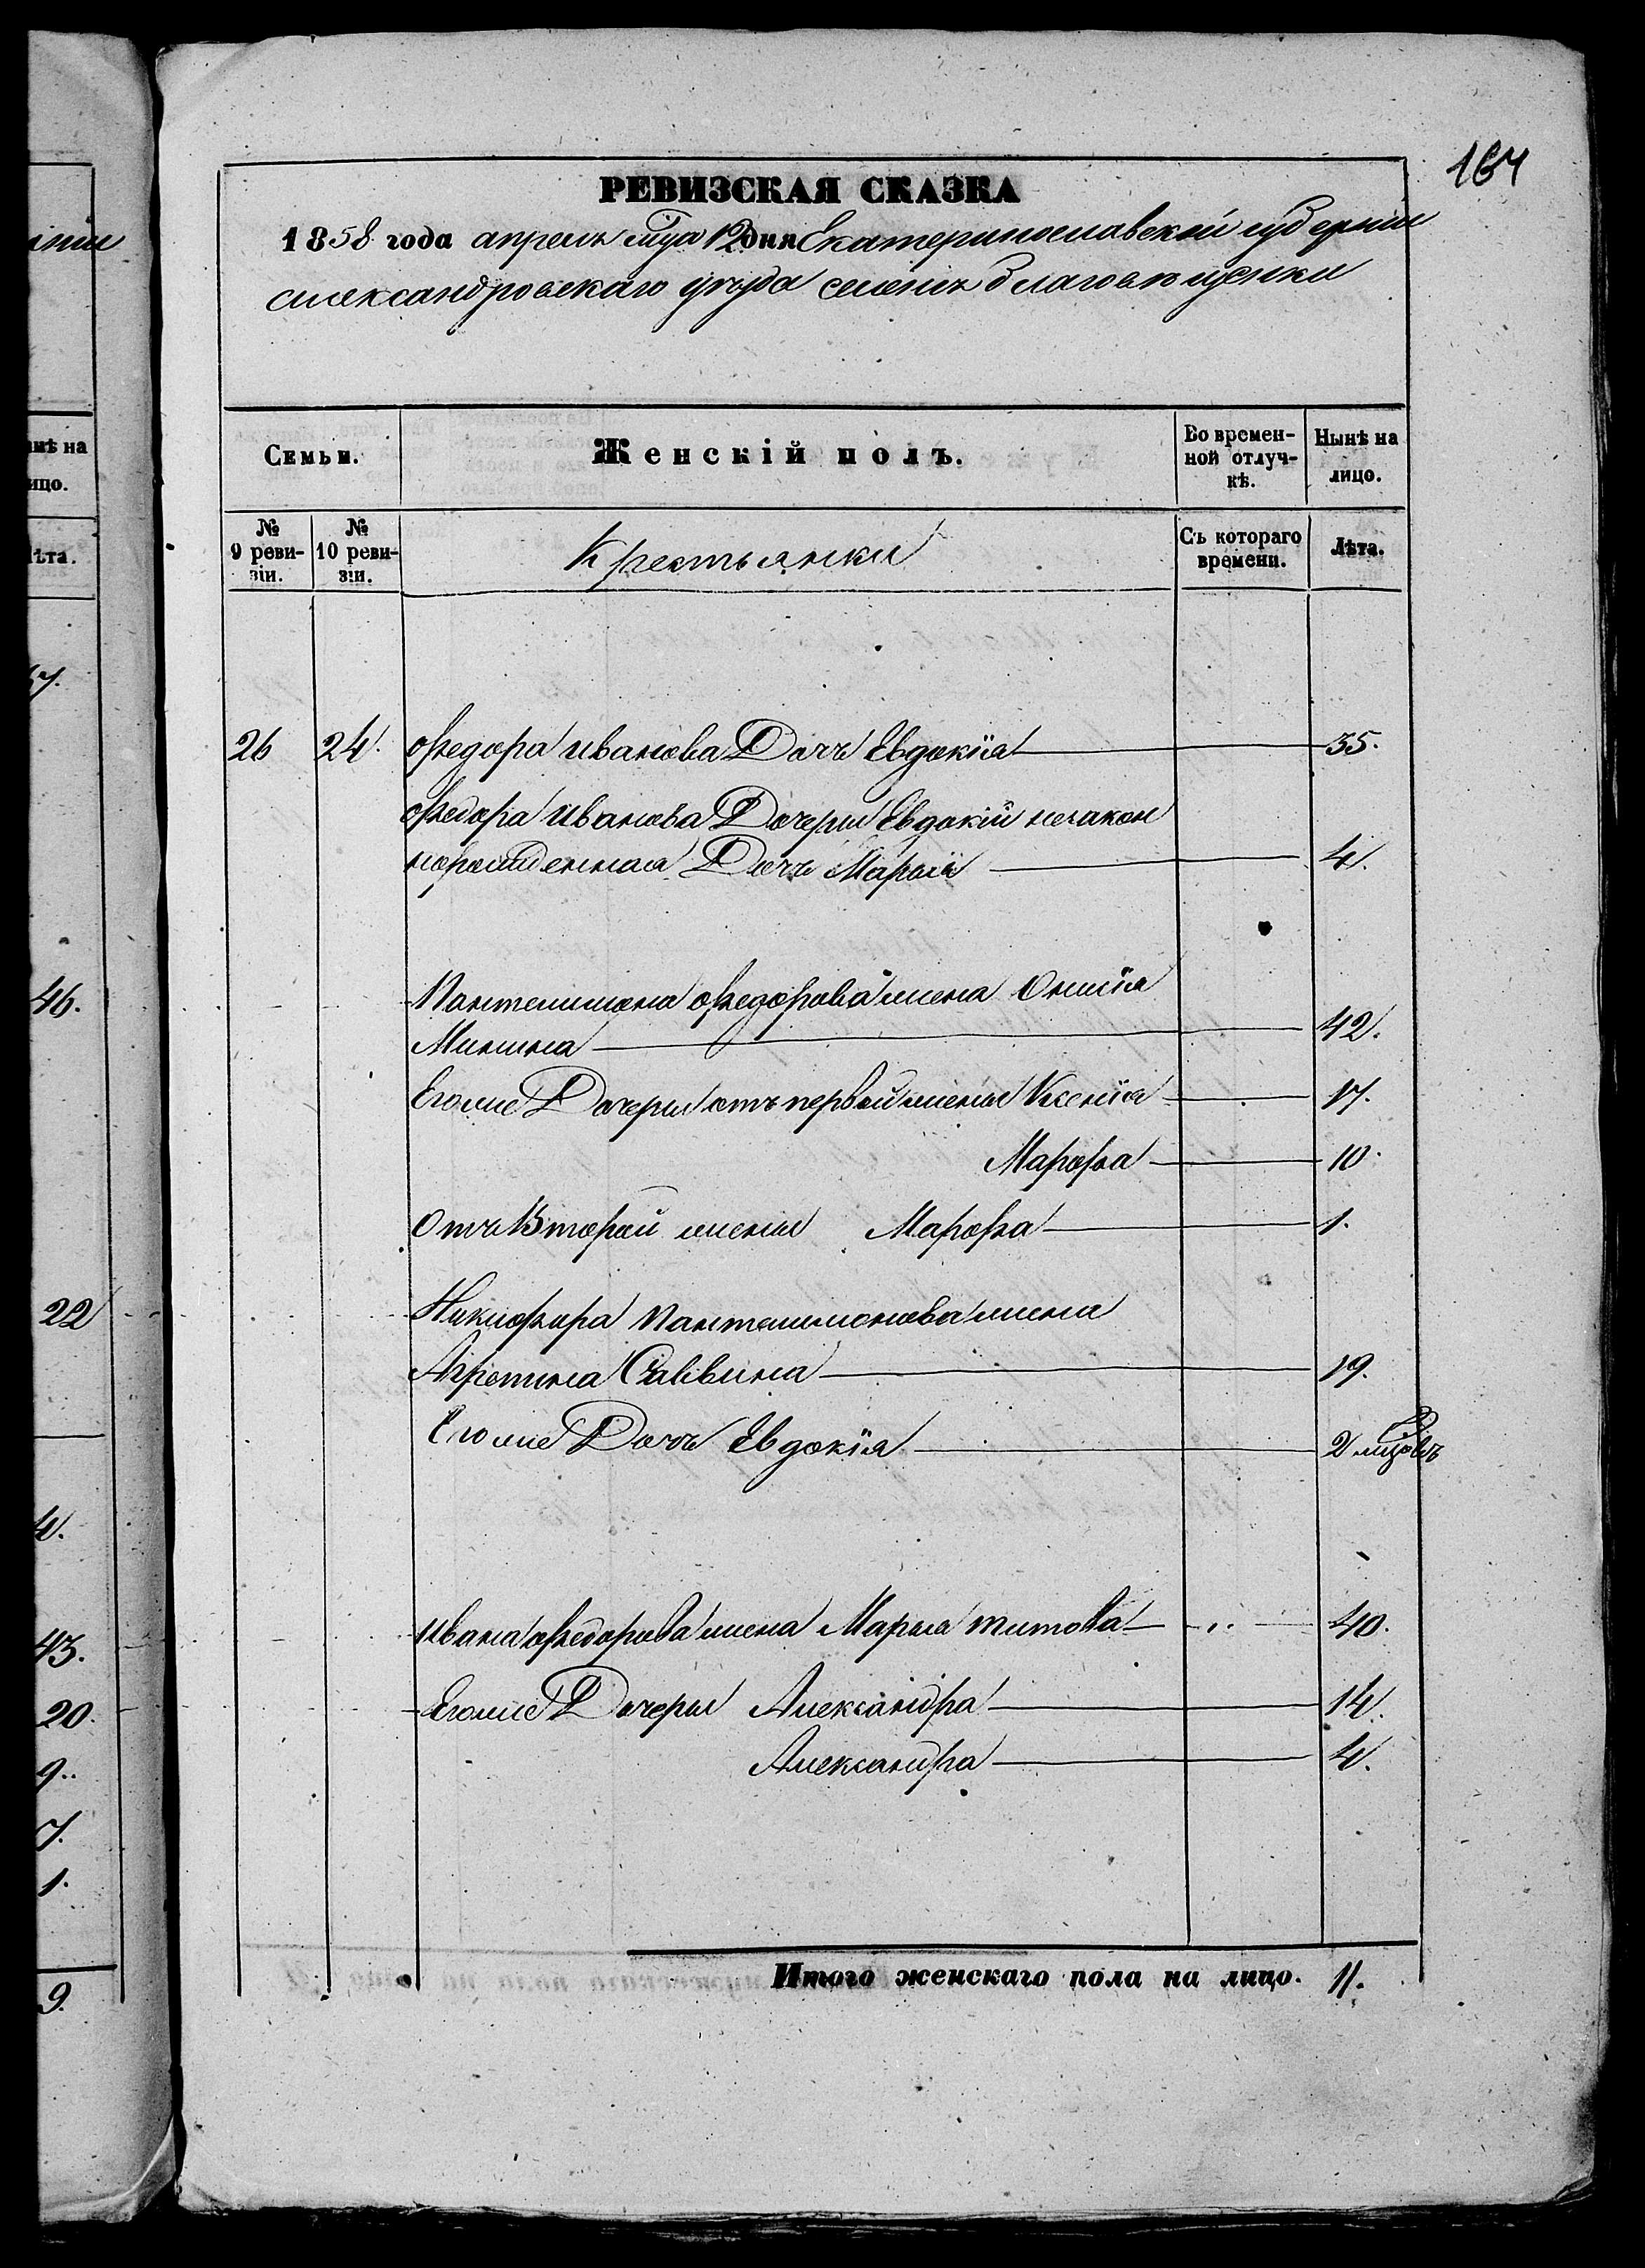 іи
мѣ на
ицо.
ѣта.
46.
22
4.
43.
20.
9.
7.
1.
9.
164
РЕВИЗСКАЯ СКАЗКА
1858 года апрель м-ца 12 дня Екатеринославской губерніи
Александровскаго уѣзда селенія Благовѣщенки
Семьи.
Женскій полъ.
Во времен-
ной отлуч-
кѣ.
Нынѣ на
лицо.
№
9 реви-
зіи.
№
10 реви-
зіи.
Крестьянки
Съ котораго
времени.
Лѣта.
26 24. Федора Иванова Дочь Евдокія 35.
Федора Иванова Дочери Евдокіи незакон
норожденная Дочь Марья 4.
Пантелимона Федорова жена
Минина 42.
Его же Дочери отъ первой жены Ксенія 17.
Марфа 10.
Отъ Второй жены Марфа 1.
Никифора Пантелимонова жена
Агрепина Саввина 19.
Его же Дочь Евдокія 2
Ивана Федорова жена Марья Титова 40.
Его же Дочери Александра 14.
Александра 4.
Итого женскаго пола на лицо. 11.